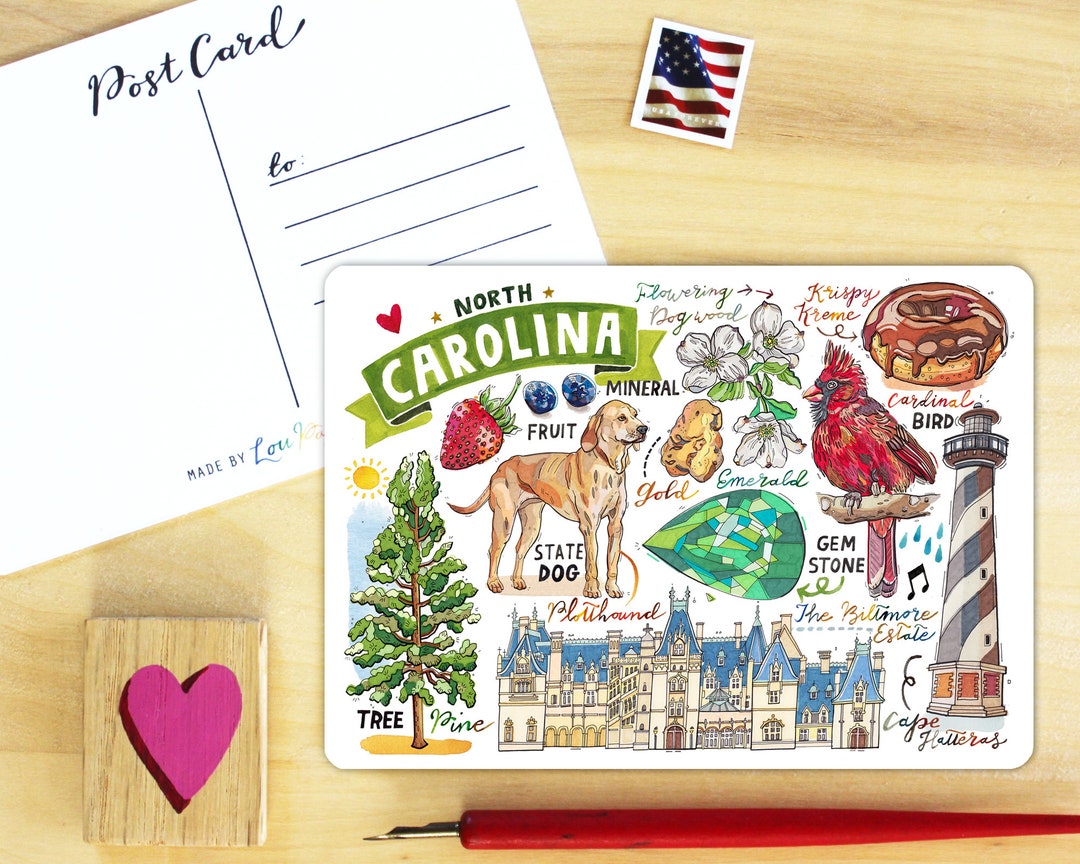 Post Card
to:
MADE BY Lou
USA FOREVER
NORTH
CAROLINA
Flowering
Dogwood
Krispy
Kreme
MINERAL
FRUIT
Cardinal
BIRD
Gold
Emerald
STATE
DOG
Plotthound
GEM
STONE
The Biltmore
Estate
TREE Pine
Cape
Hatteras